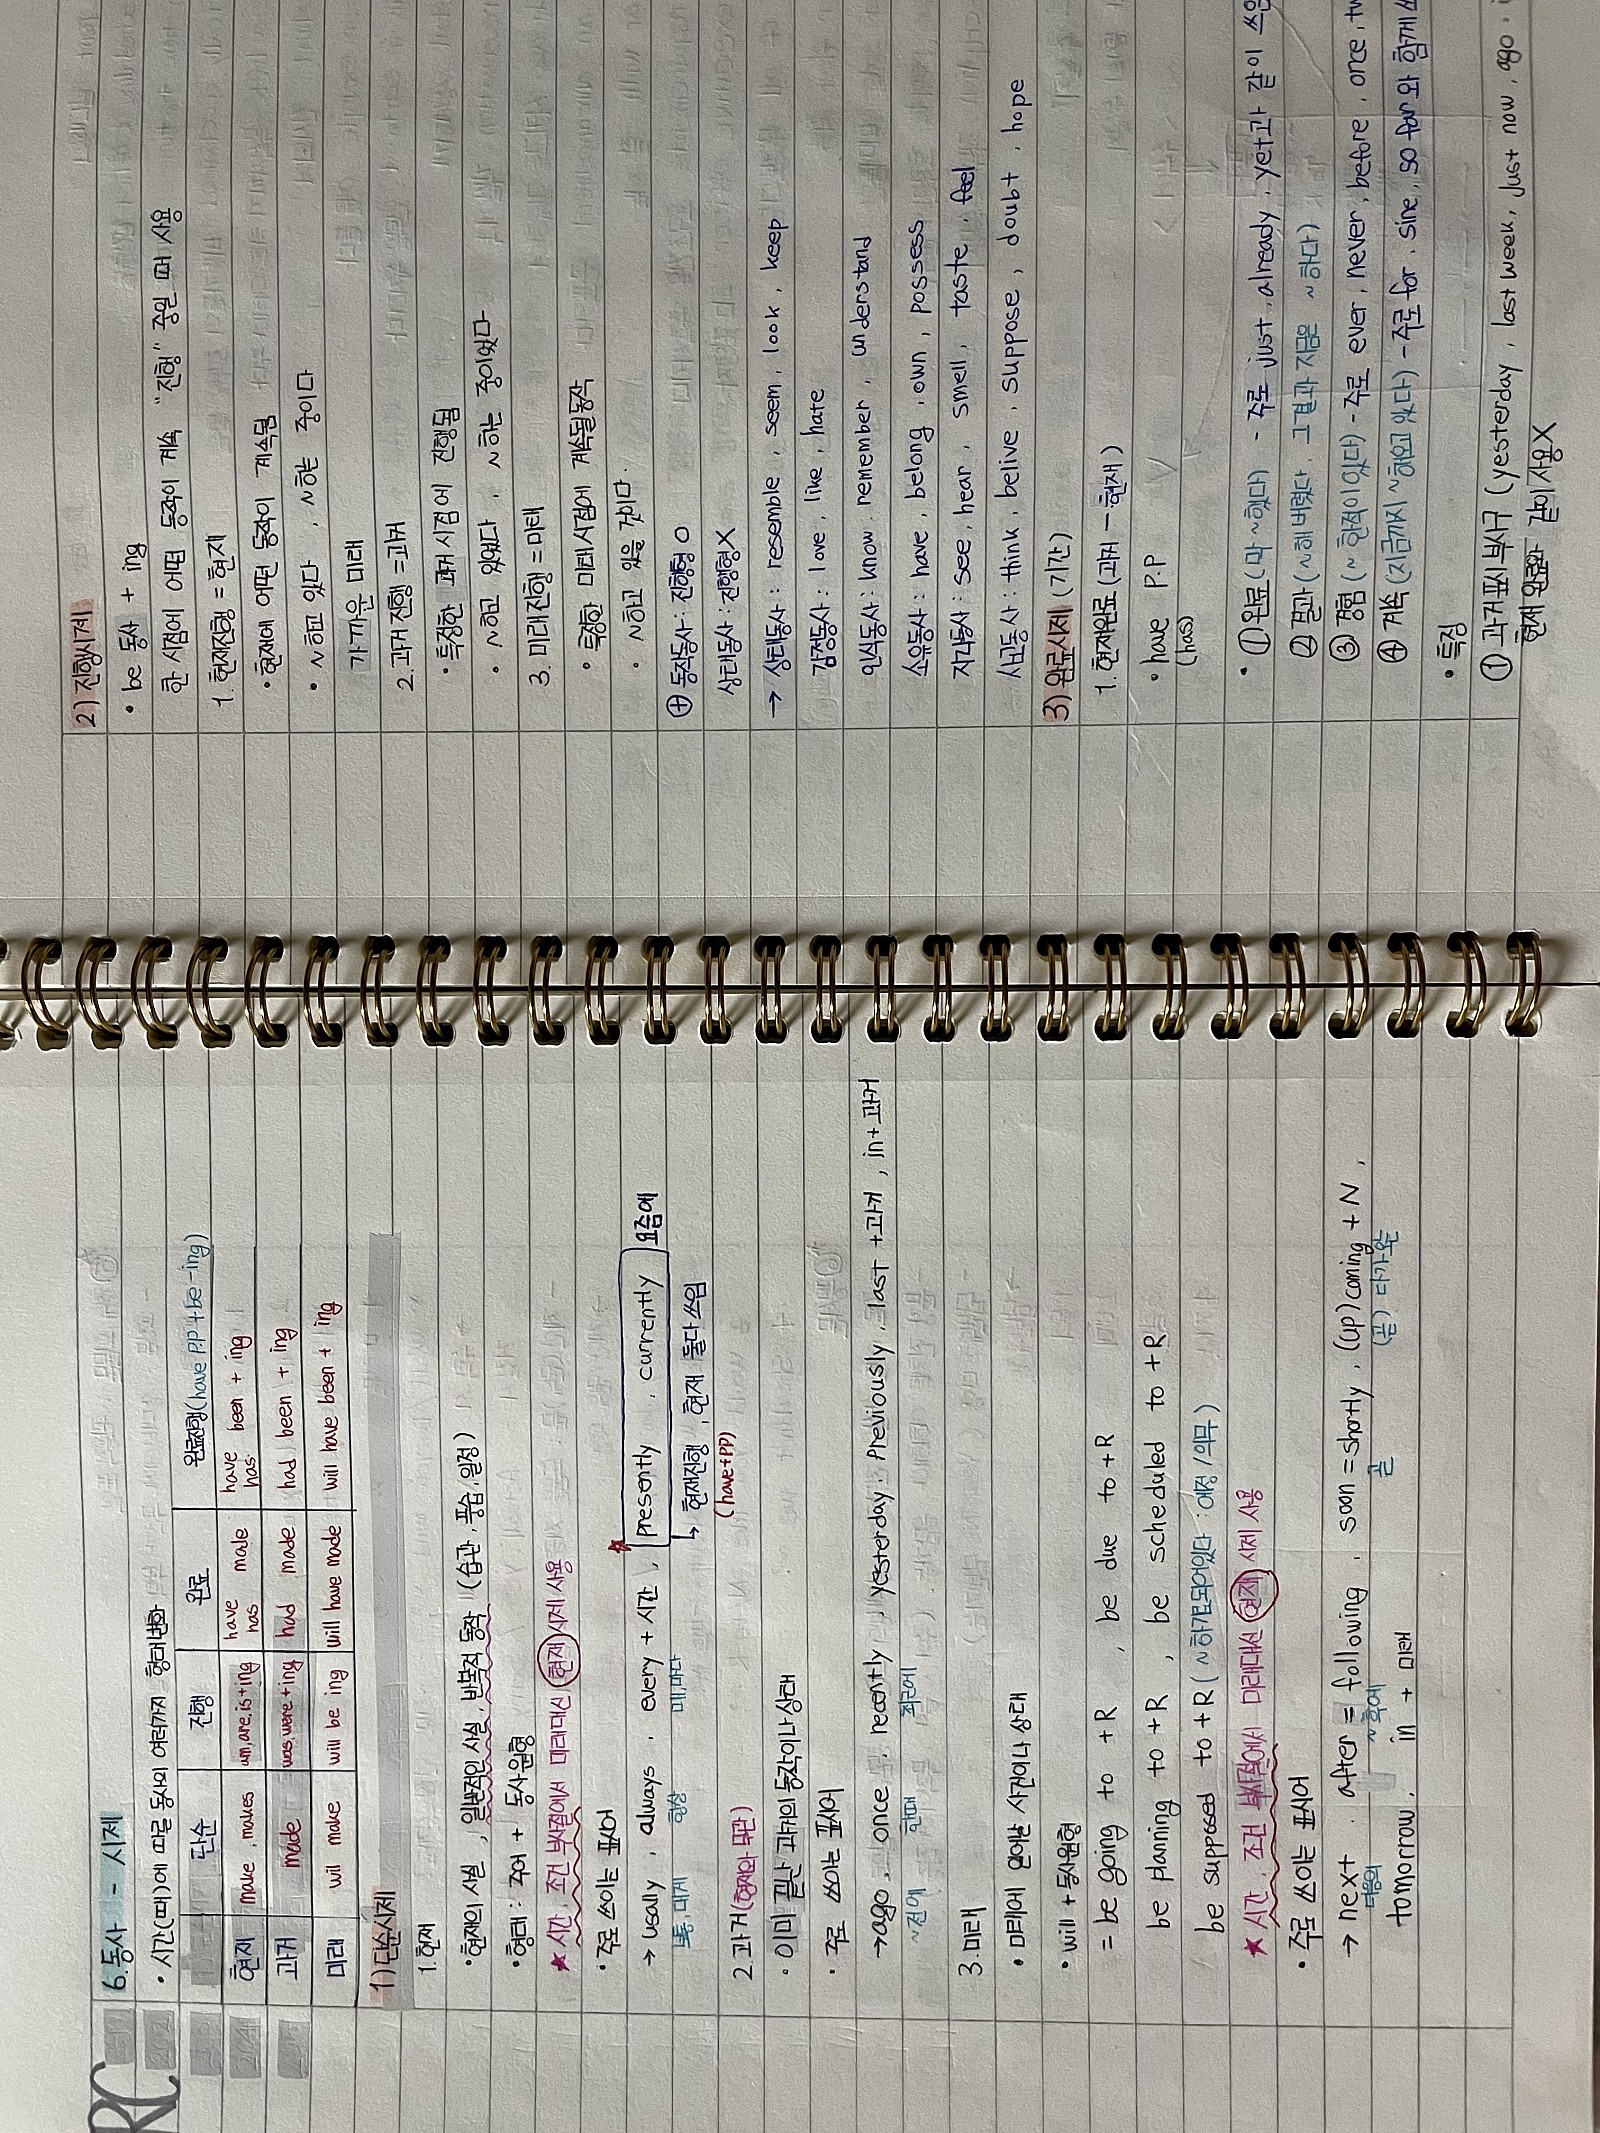 RC
6. 동사 - 시제
• 시간(때)에 따른 동사의 여러가지 형태변화
단순 진행 완료 완료진행(have P.P + be -ing)
현재 make, makes am,are,is+ing have has made have has been + ing
과거 made was,were+ing had made had been + ing
미래 wil make will be ing will have made will have been + ing
1) 단순시제
1. 현재
• 현재의 사실, 일반적인 사실, 반복적 동작 (습관, 풍습, 일정)
• 형태: 주어 + 동사원형
★ 시간, 조건 부사절에서 미래대신 현재 시제 사용
• 주로 쓰이는 표시어
→ usally, always, every + 시간, ☆ presently, currently 요즘에
보통, 대게 항상 매, 마다 ↳ 현재진행, 현재 둘다 쓰임
(have+PP)
2. 과거 (현재와 무관)
• 이미 끝난 과거의 동작이나 상태
• 주로 쓰이는 표시어
→ ago, once, recently, yesterday. Previously, last + 과거, in + 과거
~전에 한때 최근에
3. 미래
• 미래에 일어날 사건이나 상태
• will + 동사원형
= be going to + R, be due to + R
be planing to + R, be scheduled to + R
be supposed to + R (~하기로되어있다: 예정/의무)
★ 시간, 조건 부사절에서 미래대신 현재 시제 사용
• 주로 쓰이는 표시어
→ next, after = following, soon = shortly, (up)coming + N,
다음의 ~후에 곧 (곧) 다가올
tomorrow, in + 미래
2) 진행시제
• be 동사 + ing
한 시점에 어떤 동작이 계속 "진행" 중일 때 사용
1. 현재진행 = 현재
• 현재에 어떤 동작이 계속됨
• ~하고 있다, ~하는 중이다
가까운 미래
2. 과거진행 = 과거
• 특정한 과거 시점에 진행됨
• ~하고 있었다, ~하는 중이었다
3. 미래진행 = 미래
• 특정한 미래시점에 계속될동작
• ~하고 있을 것이다.
⊕ 동작동사: 진행형 O
상태동사: 진행형 X
→ 상태동사: resemble, seem, look, keep
감정동사: love, like, hate
인식동사: know, remember, understand
소유동사: have, belong, own, possess
지각동사: see, hear, smell, taste, feel
사고동사: think, belive, suppose, doubt, hope
3) 완료시제 (기간)
1. 현재완료 (과거 - 현재)
• have P.P
(has)
• ① 완료 (막 ~했다) - 주로 just, already, yet과 같이 쓰임
② 결과 (~해 버렸다, 그 결과 지금은 ~하다)
③ 경험 (~한적이 있다) - 주로 ever, never, before, once, tw
④ 계속 (지금까지 ~해오고 있다) - 주로 for, sine, so far 와 함께
• 특징
① 과거표시 부사구 (yesterday, last week, just now, ago
현재 완료와 같이 사용 X